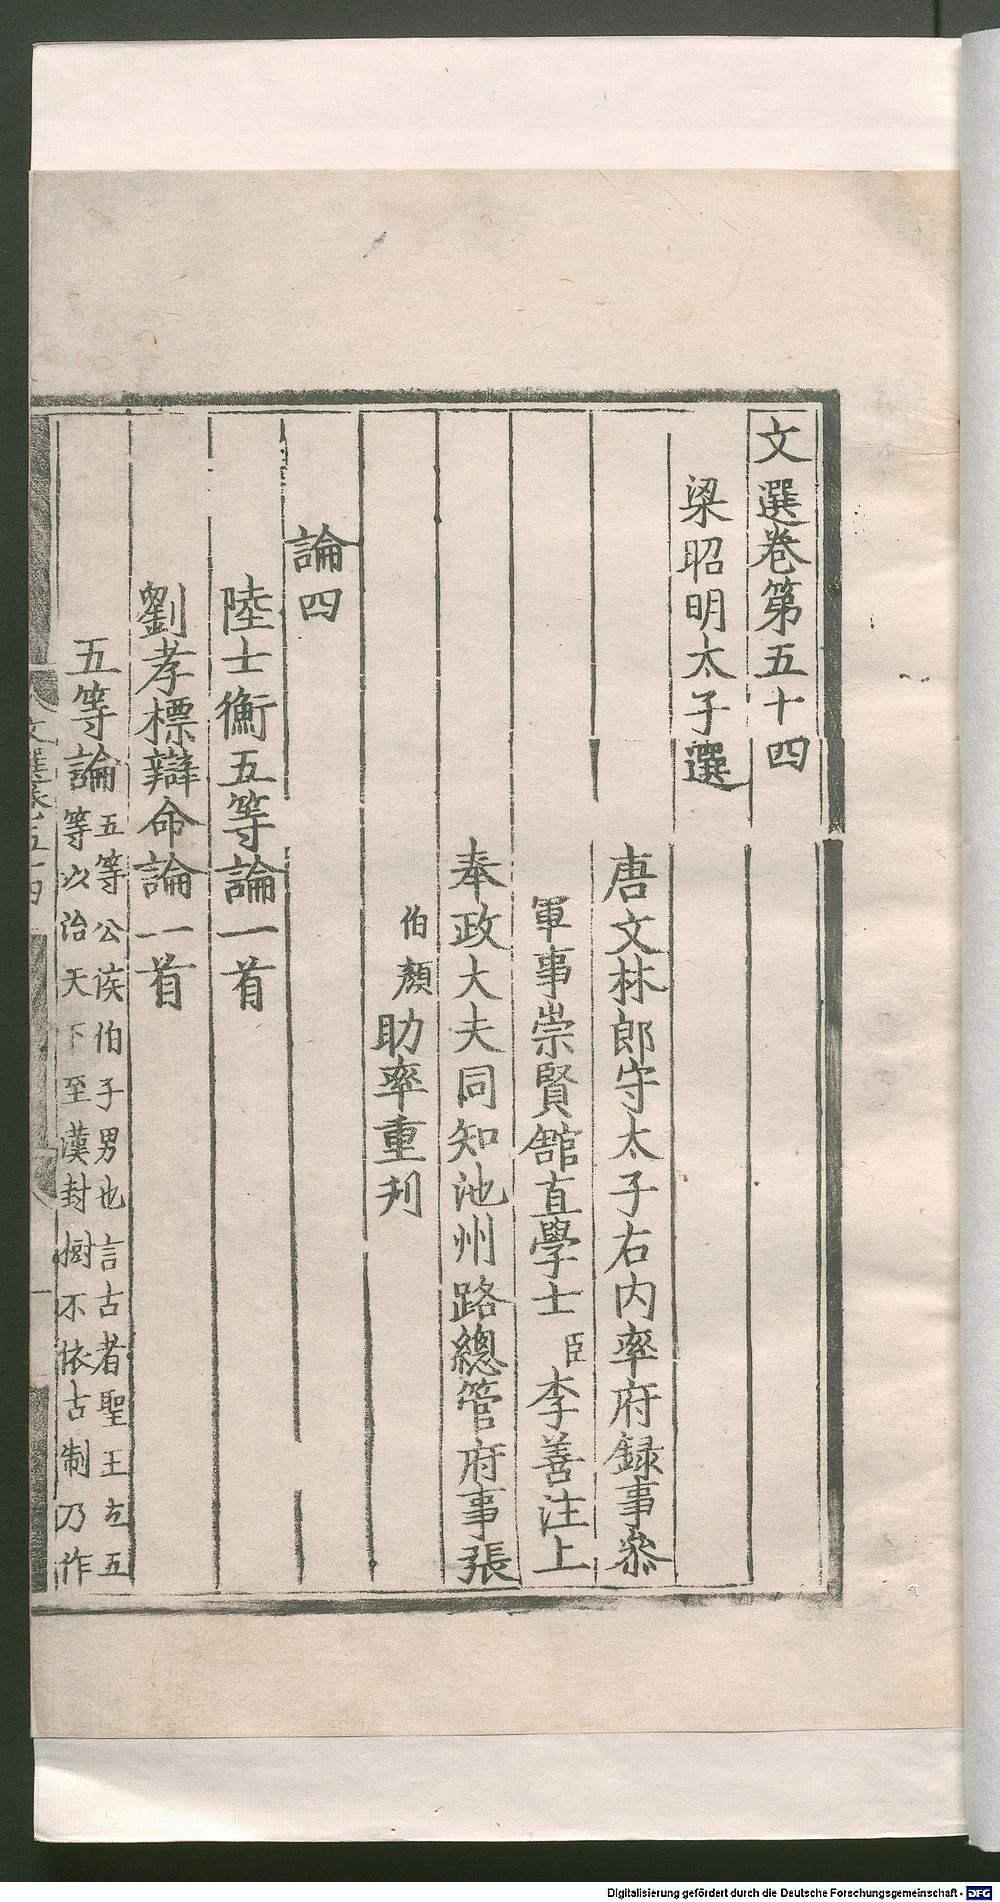 文選卷第五十四
梁昭明太子選
唐文林郎守太子右内率府録事參
軍事崇賢館直學士臣李善注上
奉政大夫同知池州路總管府事張
伯顏助率重刋
論四
陸士衡五等論一首
劉孝標辯命論一首
五等論 五等公侯伯子男也言古者聖王立五
等以治天下至漢封樹不依古制乃作
Digitalisierung gefördert durch die Deutsche Forschungsgemeinschaft - DFG